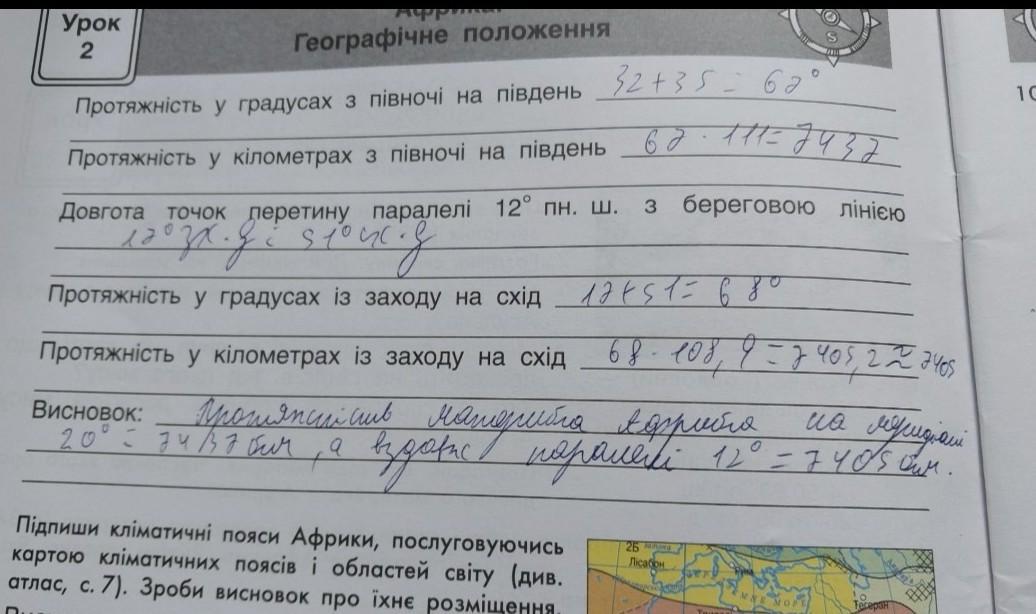 Урок
2
Африка.
Географічне положення
S
Протяжність у градусах з півночі на південь 32+35 = 67°
Протяжність у кілометрах з півночі на південь 67 · 111 = 7437
Довгота точок перетину паралелі 12° пн. ш. з береговою лінією
17° зх. д і 51° сх. д
Протяжність у градусах із заходу на схід 17+51 = 68°
Протяжність у кілометрах із заходу на схід 68 · 108,9 = 7405,2 ≈ 7405
Висновок: Протяжність материка Африка на меридіані
20° = 7437 км, а вздовж паралелі 12° = 7405 км.
10
Підпиши кліматичні пояси Африки, послуговуючись
картою кліматичних поясів і областей світу (див.
атлас, с. 7). Зроби висновок про їхнє розміщення.
2Б
Лісабон
Рим
Тегеран